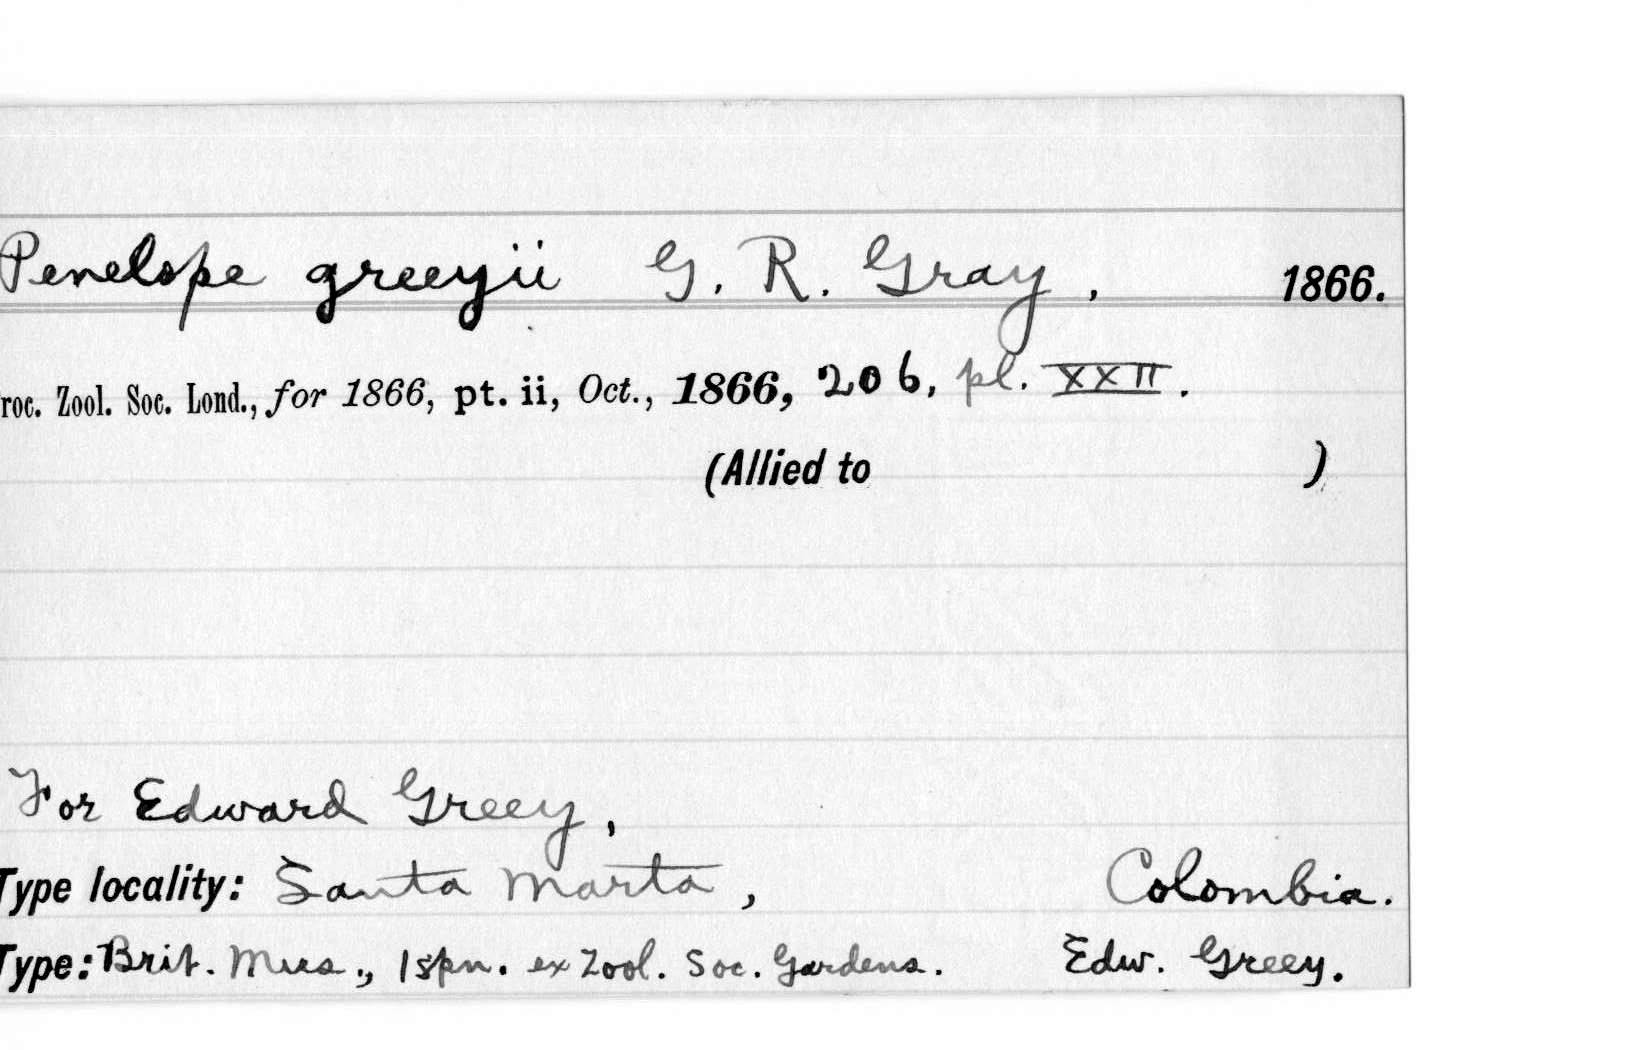 Penelope greeyii G. R. Gray, 1866.
roc. Zool. Soc. Lond., for 1866, pt. ii, Oct., 1866, 206, pl. XXII.
(Allied to )
For Edward Greey,
Type locality: Santa Marta, Colombia.
Type: Brit. Mus., 1 spn. ex Zool. Soc. Gardens. Edw. Greey.